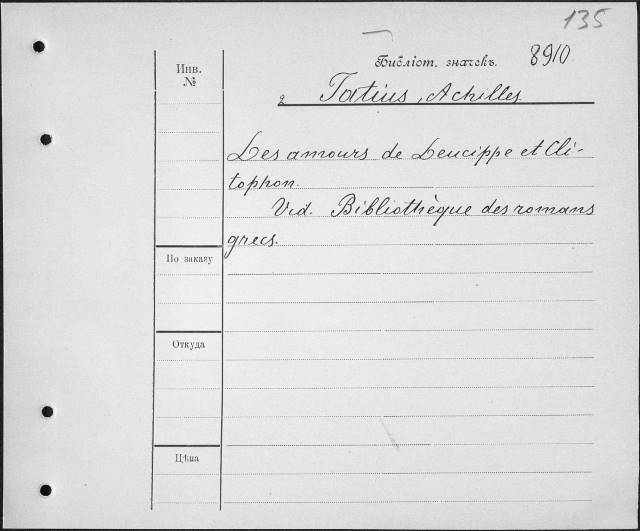 135
Библіот. значекъ. 8910
Инв.
№
2 Tatius, Achilles.
Les amours de Leucippe et Cli-
tophon.
Vid. Bibliothèque des romans
grecs.
По заказу
Откуда
Цѣна